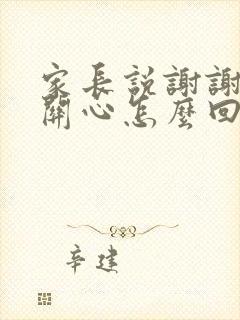 家長説謝謝
關心怎麼回
辛建